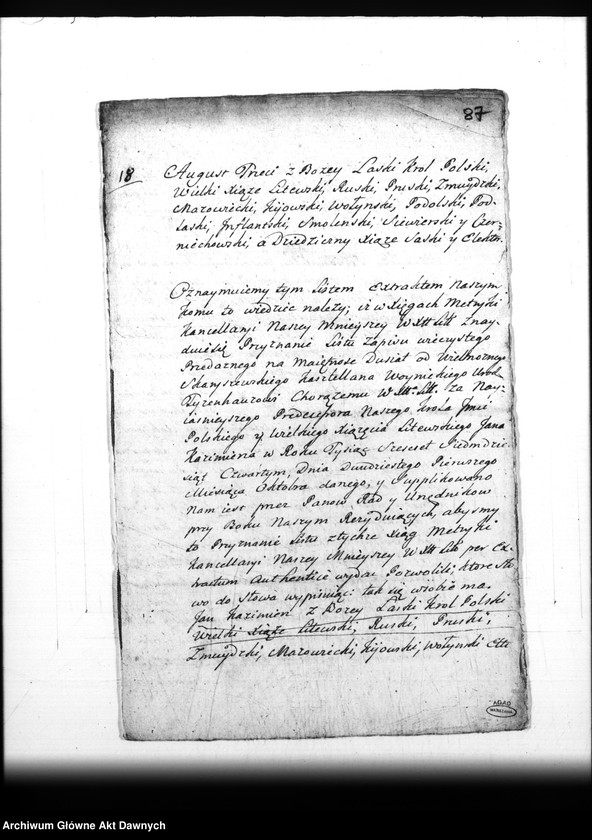 87
18
August Trzeci z Bożey Łaski Krol Polski,
Wielki Xiąże Litewski, Ruski, Pruski, Zmuydzki,
Mazowiecki, Kijowski, Wołynski, Podolski, Pod-
laski, Inflantski, Smolenski, Siewierski y Czer-
niechowski, a Dziedziczny Xiąże Saski y Elektor.
Oznaymuiemy tym Listem Extraktem Naszym
komu to wiedziec należy; iż w Xięgach Metryki
Kancellaryi Naszey Mnieyszey W Xtt Litt Znay-
duie się Przyznanie Listu Zapisu wieczystego
Przedaznego na Maiętnosc Dusiat od Wielmożnego
Skanyszewskiego Kasztellana Woynickiego Urod.
Tyzenhauzowi Chorążemu W. Xtt. Litt. za Nay-
iasnieyszego Predecessora Naszego Krola Jmci
Polskiego y Wielkiego Xiążęcia Litewskiego Jana
Kazimierza w Roku Tysiąc Szescset Siedmdzie-
siąt Czwartym, Dnia Dwudziestego Pierwszego
Miesiąca Oktobra danego, y Supplikowano
Nam iest przez Panow Rad y Urzędnikow
przy Boku Naszym Rezyduiących, abysmy
to Przyznanie Listu z tychże Xiąg Metryki
Kancellaryi Naszey Mnieyszey W Xtt Litt per Ex-
tractum Authenticè wydac Pozwolili, ktore Sło-
wo do Słowa wypisuiąc tak się w sobie ma.
Jan Kazimierz z Bożey Łaski Krol Polski
Wielki Xiąże Litewski, Ruski, Pruski,
Zmuydzki, Mazowiecki, Kijowski, Wołynski Ettc
AGAD
WARSZAWA
Archiwum Główne Akt Dawnych